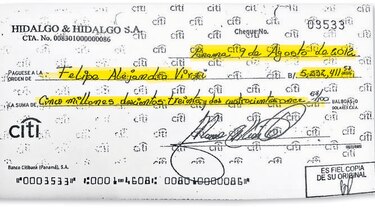 HIDALGO & HIDALGO S.A.
CTA. No. 008301000086
Cheque No. 03533
Panamá 9 de Agosto de 2012
PAGUESE A LA
ORDEN DE Felipe Alejandro Virzi B/.
LA SUMA DE Cinco millones doscientos treinta y dos cuatrocientos once BALBOAS
citi
Banco Citibank (Panamá), S.A.
ES FIEL COPIA
DE SU ORIGINAL